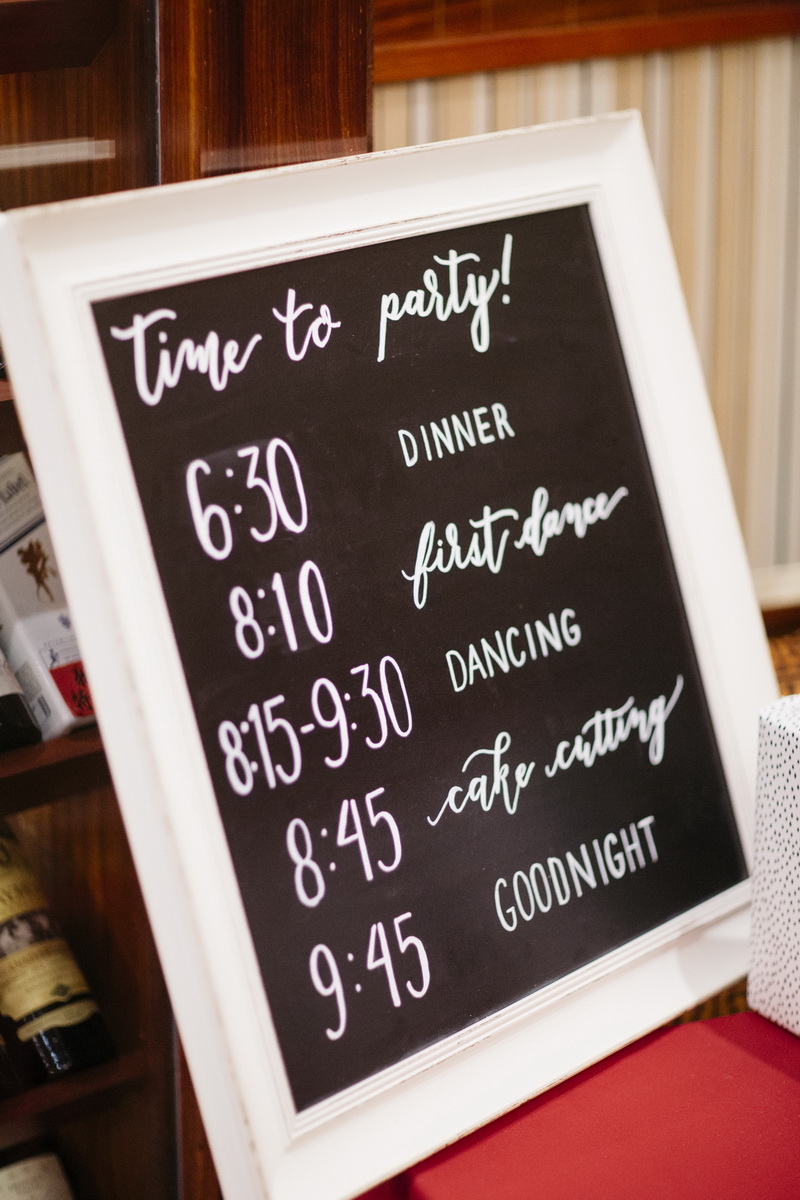 time to party!
6:30 DINNER
8:10 first dance
8:15-9:30 DANCING
8:45 cake cutting
9:45 GOODNIGHT